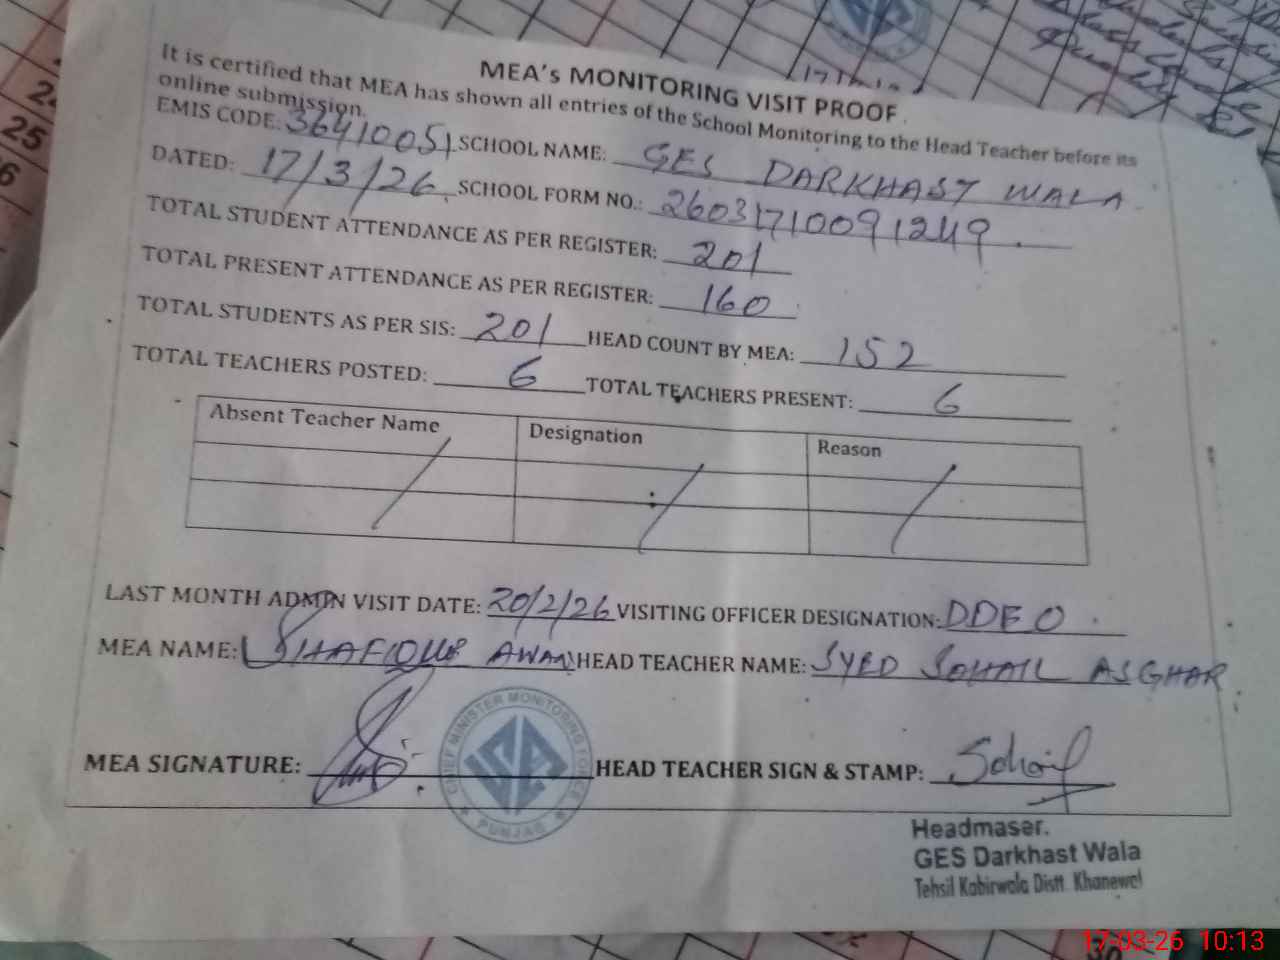 MEA's MONITORING VISIT PROOF
It is certified that MEA has shown all entries of the School Monitoring to the Head Teacher before its
online submission.
EMIS CODE: 36410051 SCHOOL NAME: GES DARKHAST WALA
DATED: 17/3/26 SCHOOL FORM NO.: 26031710091249.
TOTAL STUDENT ATTENDANCE AS PER REGISTER: 201
TOTAL PRESENT ATTENDANCE AS PER REGISTER: 160
TOTAL STUDENTS AS PER SIS: 201 HEAD COUNT BY MEA: 152
TOTAL TEACHERS POSTED: 6 TOTAL TEACHERS PRESENT: 6
Absent Teacher Name Designation Reason
/ / /
LAST MONTH ADMIN VISIT DATE: 20/2/26 VISITING OFFICER DESIGNATION: DDEO.
MEA NAME: SHAFIQUE AWAN HEAD TEACHER NAME: SYED SOHAIL ASGHAR
MEA SIGNATURE: HEAD TEACHER SIGN & STAMP: Sohail
CHIEF MINISTER MONITORING FORCE
PUNJAB
Headmaser.
GES Darkhast Wala
Tehsil Kabirwala Distt. Khanewal
17-03-26 10:13
24
25
6